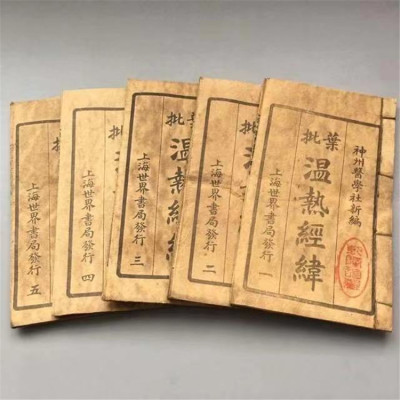 神州醫學社新編
葉批溫熱經緯
上海世界書局發行 一
批溫
上海世界書局發行 二
批溫熱經緯
上海世界書局發行 三
批溫
上海世界書局發行 四
批
上海世界書局發行 五